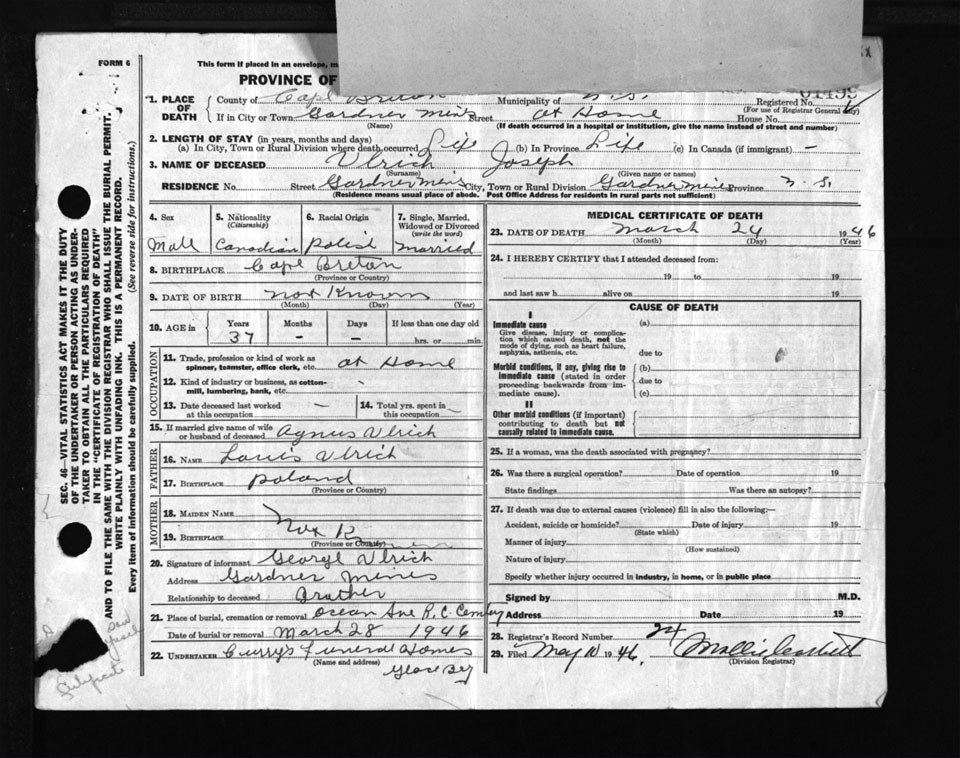 FORM 6
This form if placed in an envelope,
PROVINCE OF
1. PLACE OF DEATH
County of Cape Breton Municipality of N.S. Registered No.
(For use of Registrar General
If in City or Town Gardner Mines Street at Home House No.
(Name) (If death occurred in a hospital or institution, give the name instead of street and number)
2. LENGTH OF STAY (in years, months and days)
(a) In City, Town or Rural Division where death occurred Life (b) In Province Life (c) In Canada (if immigrant) —
3. NAME OF DECEASED Ulrich Joseph
(Surname) (Given name or names)
RESIDENCE No. Street Gardner Mines City, Town or Rural Division Gardner Mines Province N.S.
(Residence means usual place of abode. Post Office Address for residents in rural parts not sufficient)
4. Sex Male
5. Nationality (Citizenship) Canadian
6. Racial Origin Polish
7. Single, Married, Widowed or Divorced (write the word) Married
8. BIRTHPLACE Cape Breton
(Province or Country)
9. DATE OF BIRTH not Known
(Month) (Day) (Year)
10. AGE in Years Months Days If less than one day old
37 - - hrs. or min.
OCCUPATION
11. Trade, profession or kind of work as spinner, teamster, office clerk, etc. at Home
12. Kind of industry or business, as cotton-mill, lumbering, bank, etc. -
13. Date deceased last worked at this occupation —
14. Total yrs. spent in this occupation —
15. If married give name of wife or husband of deceased Agnus Ulrich
FATHER
16. Name Louis Ulrich
17. Birthplace Poland
(Province or Country)
MOTHER
18. Maiden Name
19. Birthplace Not
(Province or Country)
20. Signature of informant George Ulrich
Address Gardner Mines
Relationship to deceased Brother
21. Place of burial, cremation or removal Ocean Ave R.C. Cemtery
Date of burial or removal March 28 1946
22. UNDERTAKER Curry's Funeral Homes
(Name and address)
Glace Bay
MEDICAL CERTIFICATE OF DEATH
23. DATE OF DEATH March 24 1946
(Month) (Day) (Year)
24. I HEREBY CERTIFY that I attended deceased from:
19 to 19
and last saw h alive on 19
CAUSE OF DEATH
I
Immediate cause
Give disease, injury or complication which caused death, not the mode of dying, such as heart failure, asphyxia, asthenia, etc.
(a)
due to
Morbid conditions, if any, giving rise to immediate cause (stated in order proceeding backwards from immediate cause).
(b)
due to
(c)
II
Other morbid conditions (if important) contributing to death but not causally related to immediate cause.
25. If a woman, was the death associated with pregnancy?
26. Was there a surgical operation? Date of operation 19
State findings Was there an autopsy?
27. If death was due to external causes (violence) fill in also the following:—
Accident, suicide or homicide? Date of injury 19
(State which)
Manner of injury
(How sustained)
Nature of injury
Specify whether injury occurred in industry, in home, or in public place
Signed by M.D.
Address Date 19
28. Registrar's Record Number 24
29. Filed May 10 1946
(Division Registrar)
SEC. 46—VITAL STATISTICS ACT MAKES IT THE DUTY
OF THE UNDERTAKER OR PERSON ACTING AS UNDER-
TAKER TO OBTAIN ALL THE PARTICULARS REQUIRED
IN THE "CERTIFICATE OF REGISTRATION OF DEATH"
AND TO FILE THE SAME WITH THE DIVISION REGISTRAR WHO SHALL ISSUE THE BURIAL PERMIT.
WRITE PLAINLY WITH UNFADING INK. THIS IS A PERMANENT RECORD.
Every item of information should be carefully supplied. (See reverse side for instructions.)